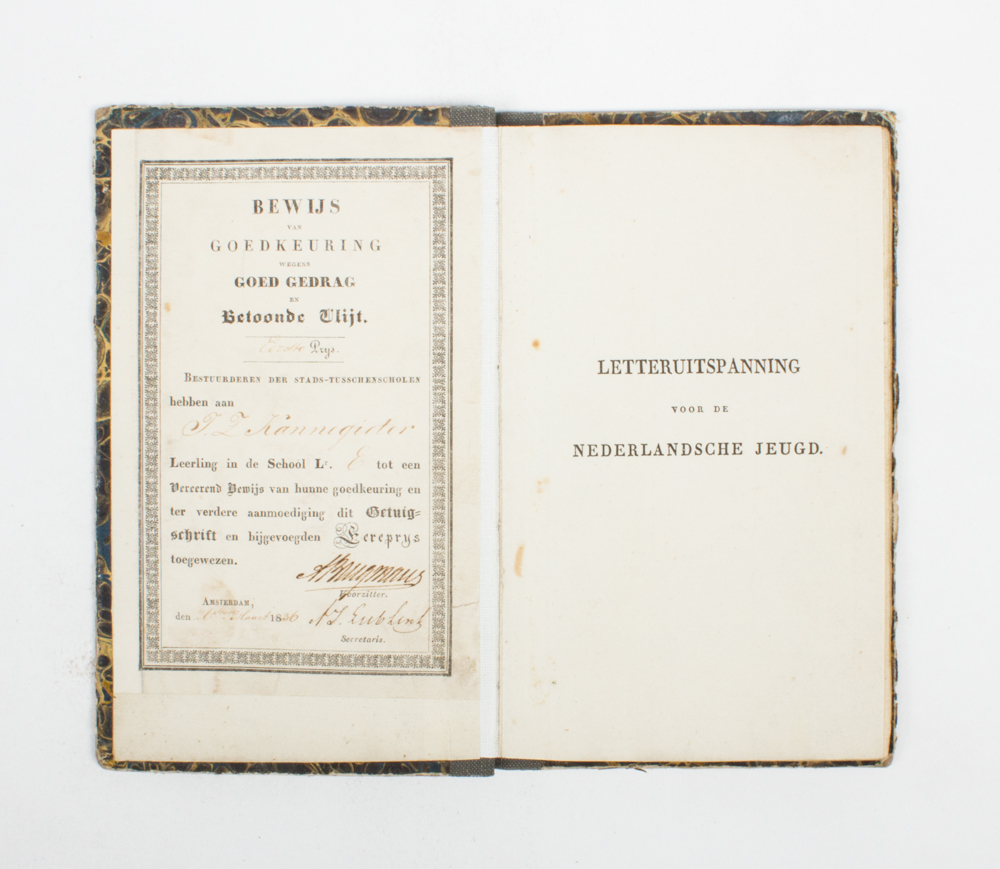 BEWIJS
VAN
GOEDKEURING
WEGENS
GOED GEDRAG
EN
Betoonde Vlijt.
Prys.
BESTUURDEREN DER STADS-TUSSCHENSCHOLEN
hebben aan
J. Z Kannegieter
Leerling in de School Lr. E tot een
Vereerend Bewijs van hunne goedkeuring en
ter verdere aanmoediging dit Getuig=
schrift en bijgevoegden Eereprys
toegewezen.
ABrugmans
Voorzitter.
AMSTERDAM,
den Maart 1836
Secretaris.
LETTERUITSPANNING
VOOR DE
NEDERLANDSCHE JEUGD.